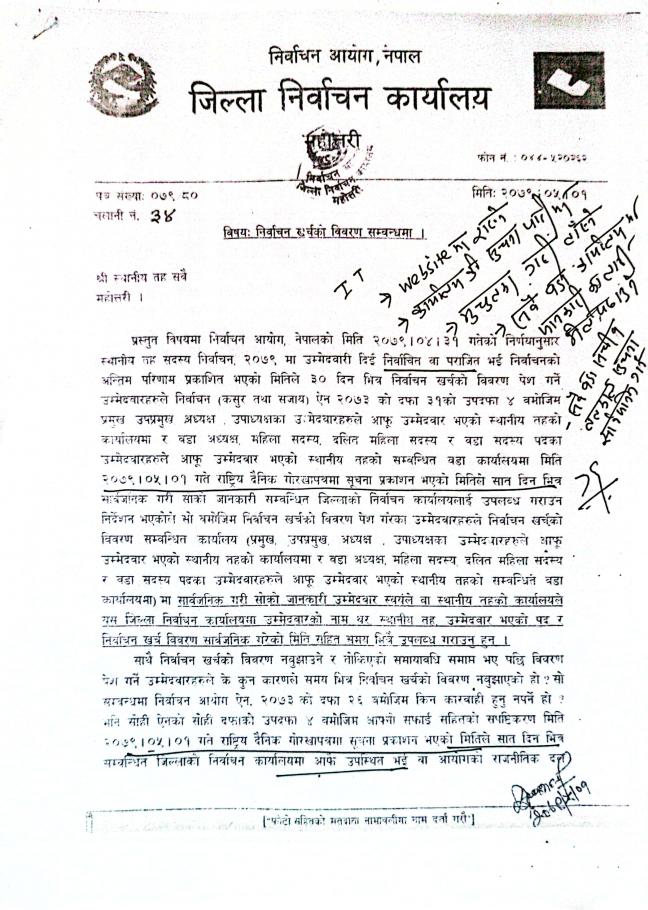 निर्वाचन आयोग, नेपाल
जिल्ला निर्वाचन कार्यालय
महोत्तरी
फोन नं. : ०४४-५२०२६२
पत्र संख्याः ०७९/८०
मितिः २०७९।०५।०१
चलानी नं. ३४
विषयः निर्वाचन खर्चको विवरण सम्बन्धमा ।
श्री स्थानीय तह सबै
महोत्तरी ।
IT
→ website मा राख्ने
प्रस्तुत विषयमा निर्वाचन आयोग, नेपालको मिति २०७९।०४।३१ गतेको निर्णयानुसार
स्थानीय तह सदस्य निर्वाचन, २०७९ मा उम्मेदवारी दिई निर्वाचित वा पराजित भई निर्वाचनको
अन्तिम परिणाम प्रकाशित भएको मितिले ३० दिन भित्र निर्वाचन खर्चको विवरण पेश गर्ने
उम्मेदवारहरुले निर्वाचन (कसुर तथा सजाय) ऐन २०७३ को दफा ३१को उपदफा ४ बमोजिम
प्रमुख उपप्रमुख अध्यक्ष , उपाध्यक्षका उम्मेदवारहरुले आफू उम्मेदवार भएको स्थानीय तहको
कार्यालयमा र वडा अध्यक्ष, महिला सदस्य, दलित महिला सदस्य र वडा सदस्य पदका
उम्मेदवारहरुले आफू उम्मेदवार भएको स्थानीय तहको सम्बन्धित वडा कार्यालयमा मिति
२०७९।०५।०१ गते राष्ट्रिय दैनिक गोरखापत्रमा सूचना प्रकाशन भएको मितिले सात दिन भित्र
सार्वजनिक गरी सोको जानकारी सम्बन्धित जिल्लाको निर्वाचन कार्यालयलाई उपलब्ध गराउन
निर्देशन भएकोले सो बमोजिम निर्वाचन खर्चको विवरण पेश गरेका उम्मेदवारहरुले निर्वाचन खर्चको
विवरण सम्बन्धित कार्यालय (प्रमुख, उपप्रमुख, अध्यक्ष , उपाध्यक्षका उम्मेदवारहरुले आफू
उम्मेदवार भएको स्थानीय तहको कार्यालयमा र वडा अध्यक्ष, महिला सदस्य, दलित महिला सदस्य
र वडा सदस्य पदका उम्मेदवारहरुले आफू उम्मेदवार भएको स्थानीय तहको सम्बन्धित वडा
कार्यालयमा) मा सार्वजनिक गरी सोको जानकारी उम्मेदवार स्वयंले वा स्थानीय तहको कार्यालयले
यस जिल्ला निर्वाचन कार्यालयमा उम्मेदवारको नाम थर, स्थानीय तह, उम्मेदवार भएको पद र
निर्वाचन खर्च विवरण सार्वजनिक गरेको मिति सहित समय भित्रै उपलब्ध गराउनु हुन ।
साथै निर्वाचन खर्चको विवरण नबुझाउने र तोकिएको समयावधि समाप्त भए पछि विवरण
पेश गर्ने उम्मेदवारहरुले के कुन कारणले समय भित्र निर्वाचन खर्चको विवरण नबुझाएको हो ? सो
सम्बन्धमा निर्वाचन आयोग ऐन, २०७३ को दफा २६ बमोजिम किन कारवाही हुनु नपर्ने हो ?
भनि सोही ऐनको सोही दफाको उपदफा ४ बमोजिम आफ्नो सफाई सहितको स्पष्टिकरण मिति
२०७९।०५।०१ गते राष्ट्रिय दैनिक गोरखापत्रमा सूचना प्रकाशन भएको मितिले सात दिन भित्र
सम्बन्धित जिल्लाको निर्वाचन कार्यालयमा आफै उपस्थित भई वा आयोगको राजनीतिक दल
["फोटो सहितको मतदाता नामावलीमा नाम दर्ता गरौं"]